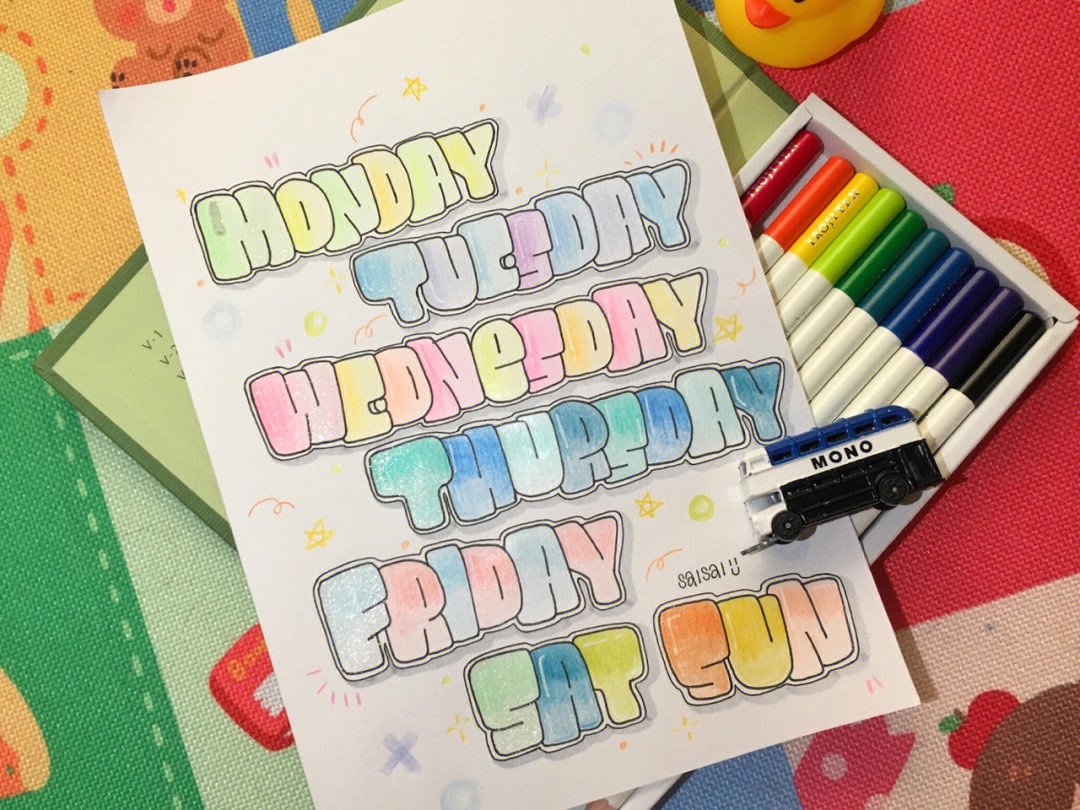 MONDAY
TUESDAY
WEDNeSDAY
THURSDAY
FRIDAY
saisai
SAT SUN
MONO